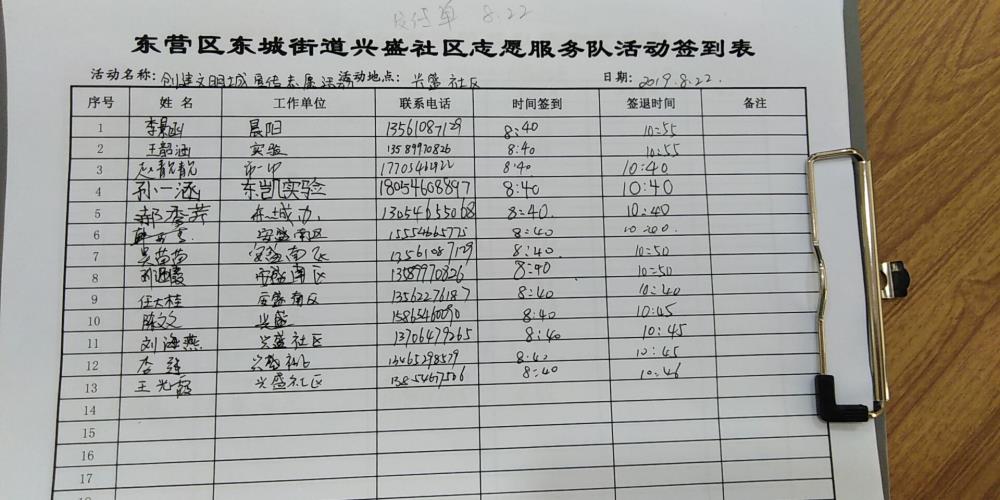 单 8.22
东营区东城街道兴盛社区志愿服务队活动签到表
活动名称: 创建文明城宣传志愿活动 活动地点: 兴盛社区 日期: 2019.8.22.
序号 姓名 工作单位 联系电话 时间签到 签退时间 备注
1 晨阳 13561087129 8:40 10:55
2 王韶涵 实验 13589970826 8:40 10:55
3 赵靓靓 市一中 8:40 10:40
4 孙一涵 东凯实验 18054608897 8:40 10:40
5 郝秀芹 东城办 13054655068 8:40 10:40
6 安盛南区 15554665775 8:40
7 吴苗苗 安盛南区 13561087129 8:40 10:50
8 安盛南区 13589970826 8:40 10:50
9 任大桂 安盛南区 13562276187 8:40 10:40
10 陈文文 兴盛 15865460090 8:40 10:45
11 刘海燕 兴盛社区 13706479265 8:40 10:45
12 李 兴盛社区 13465298579 8:40 10:45
13 王光霞 兴盛社区 8:40 10:46
14
15
16
17